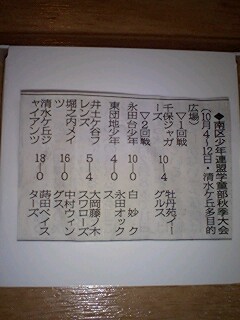 ◆南区少年連盟学童部秋季大会
（10月4～12日・清水ケ丘多目的
広場）
▽1回戦
千保ジャガーズ 10－4 牡丹苑イーグルス
▽2回戦
永田台少年 10－0 白妙ク
東団地少年 4－0 永田オックス
井土ケ谷フレンズ 5－4 大岡藤ノ木スワローズ
堀之内メイツ 16－0 中村ウィングス
清水ケ丘ジャイアンツ 18－0 蒔田ベイスターズ